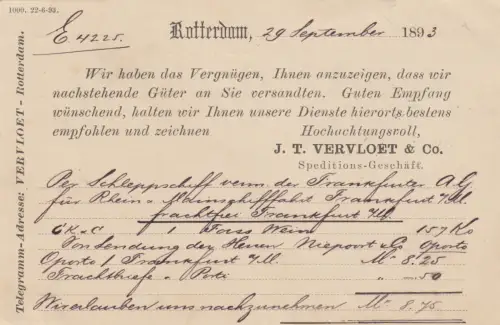 1000. 22-6-93.
E 4225.
Rotterdam, 29 September 1893
Wir haben das Vergnügen, Ihnen anzuzeigen, dass wir
nachstehende Güter an Sie versandten. Guten Empfang
wünschend, halten wir Ihnen unsere Dienste hierorts bestens
empfohlen und zeichnen
Hochachtungsvoll,
J. T. VERVLOET & Co.
Speditions-Geschäft.
Telegramm-Adresse: VERVLOET - Rotterdam.
Per Schleppschiff der Frankfurter A.G
für Rhein- & Mainschifffahrt Frankfurt a/M.
frachtfrei Frankfurt a/M.
1 Fass Wein 157 Ko
Von Sendung der Herren Niepoort & Co Oporto
Oporto Frankfurt a/M. M 8.25
Frachtbriefe & Porti " -.50
Wir erlauben uns nachzunehmen M 8.75